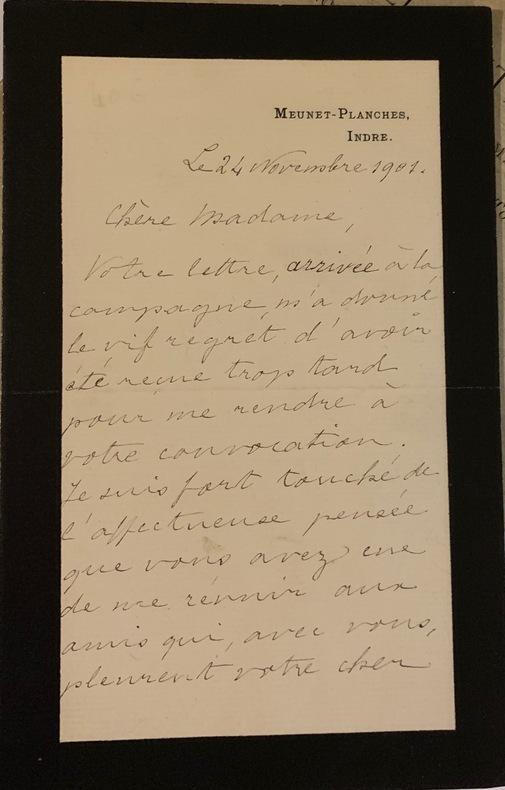 MEUNET-PLANCHES,
INDRE.
Le 24 Novembre 1901.
Chère Madame,
Votre lettre, arrivée à la
campagne, m'a donné
le vif regret d'avoir
été reçue trop tard
pour me rendre à
votre convocation.
Je suis fort touché de
l'affectueuse pensée
que vous avez eue
de me réunir aux
amis qui, avec vous,
pleurent votre cher